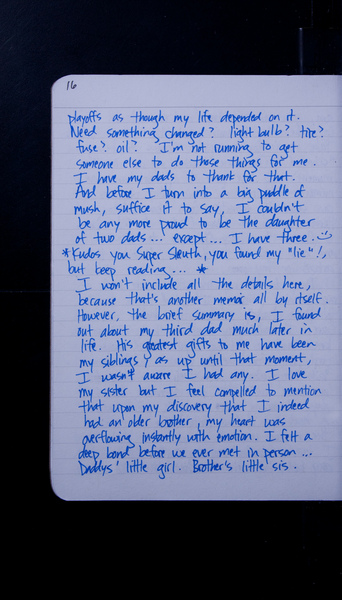 16
playoffs as though my life depended on it.
Need something changed? light bulb? tire?
fuse? oil? I'm not running to get
someone else to do those things for me.
I have my dads to thank for that.
And before I turn into a big puddle of
mush, suffice it to say, I couldn't
be any more proud to be the daughter
of two dads... except... I have three.
*Kudos you Super Sleuth, you found my "lie"!,
but keep reading... *
I won't include all the details here,
because that's another memoir all by itself.
However, the brief summary is, I found
out about my third dad much later in
life. His greatest gifts to me have been
my siblings, as up until that moment,
I wasn't aware I had any. I love
my sister but I feel compelled to mention
that upon my discovery that I indeed
had an older brother, my heart was
overflowing instantly with emotion. I felt a
deep bond before we ever met in person...
Daddys' little girl. Brother's little sis.